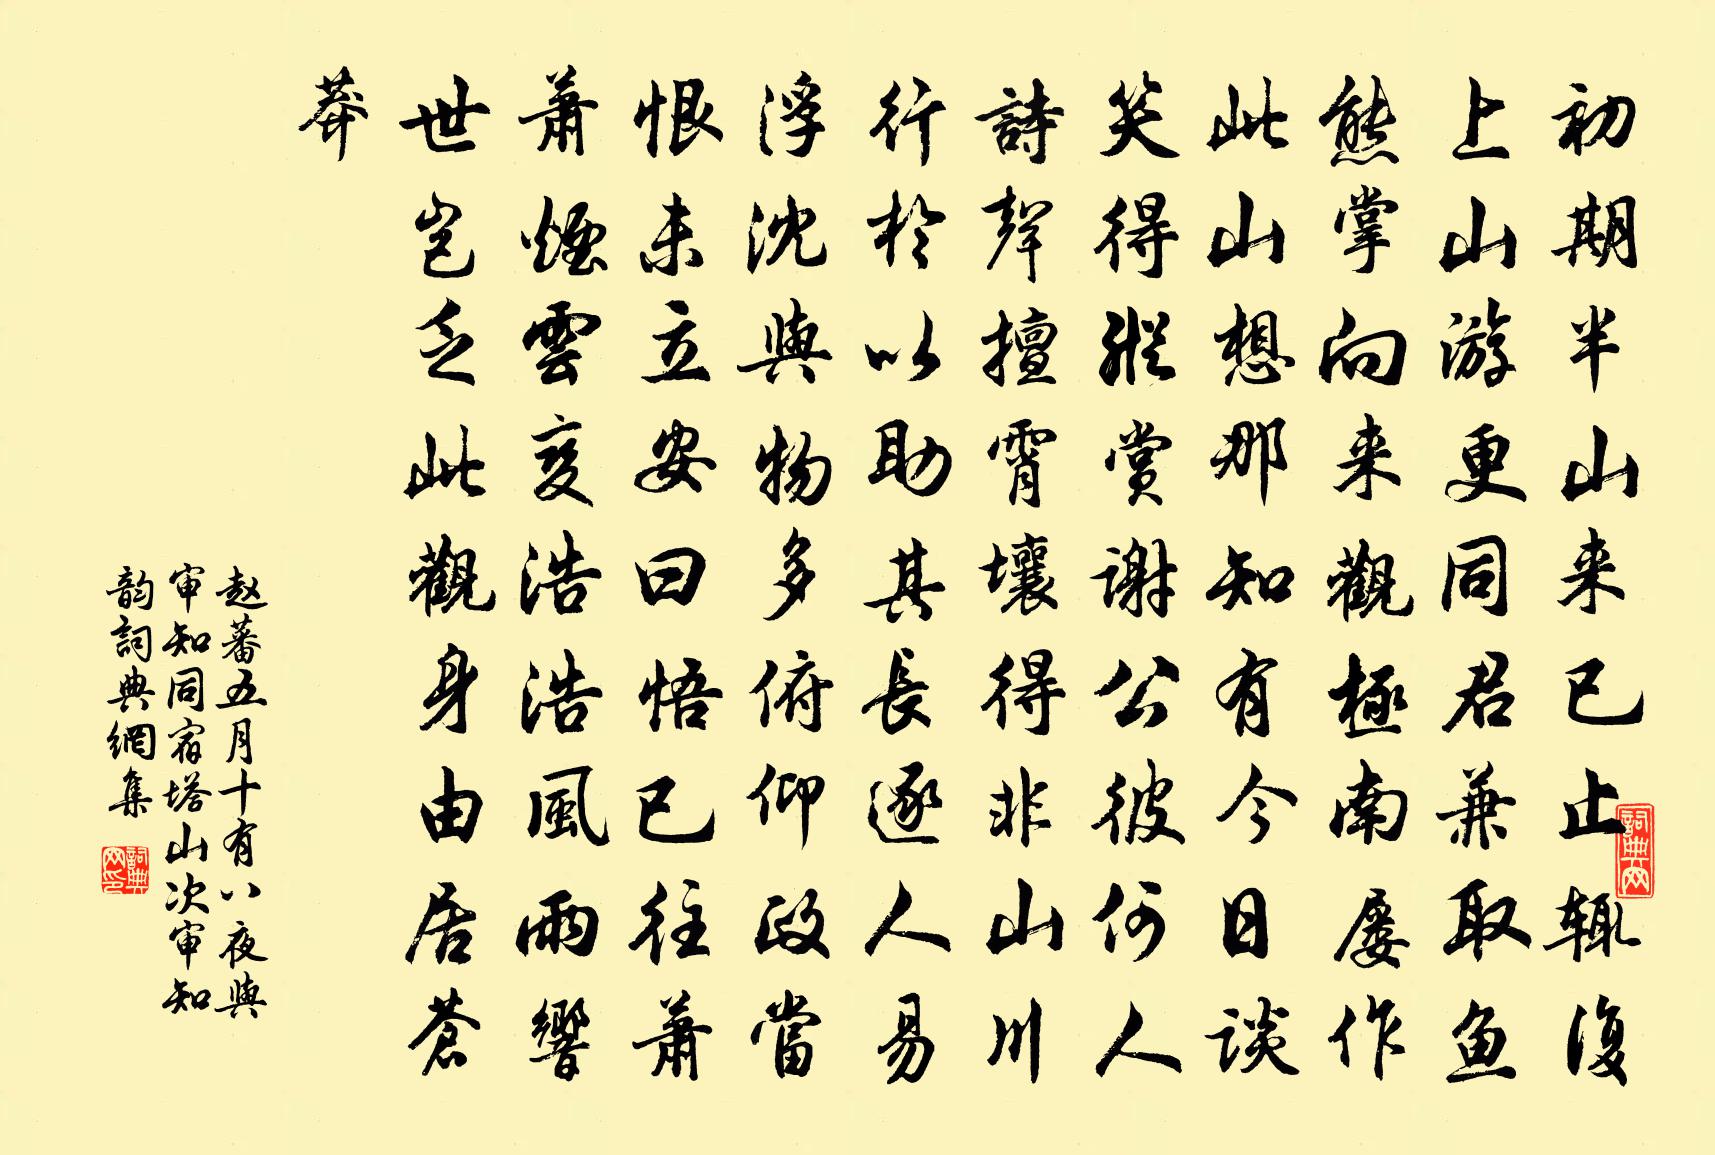 初期半山来已止輙復
上山游更同君兼取魚
熊掌向来觀極南屡作
此山想那知有今日談
笑得縱賞謝公彼何人
詩聲擅霄壤得非山川
行於以助其長逐人易
浮沈與物多俯仰政當
恨未立安曰悟已往蕭
蕭煙雲変浩浩風雨響
世豈乏此觀身由居蒼
莽
赵蕃五月十有八夜與
审知同宿塔山次审知
韵詞典網集
詞典网
詞典网印